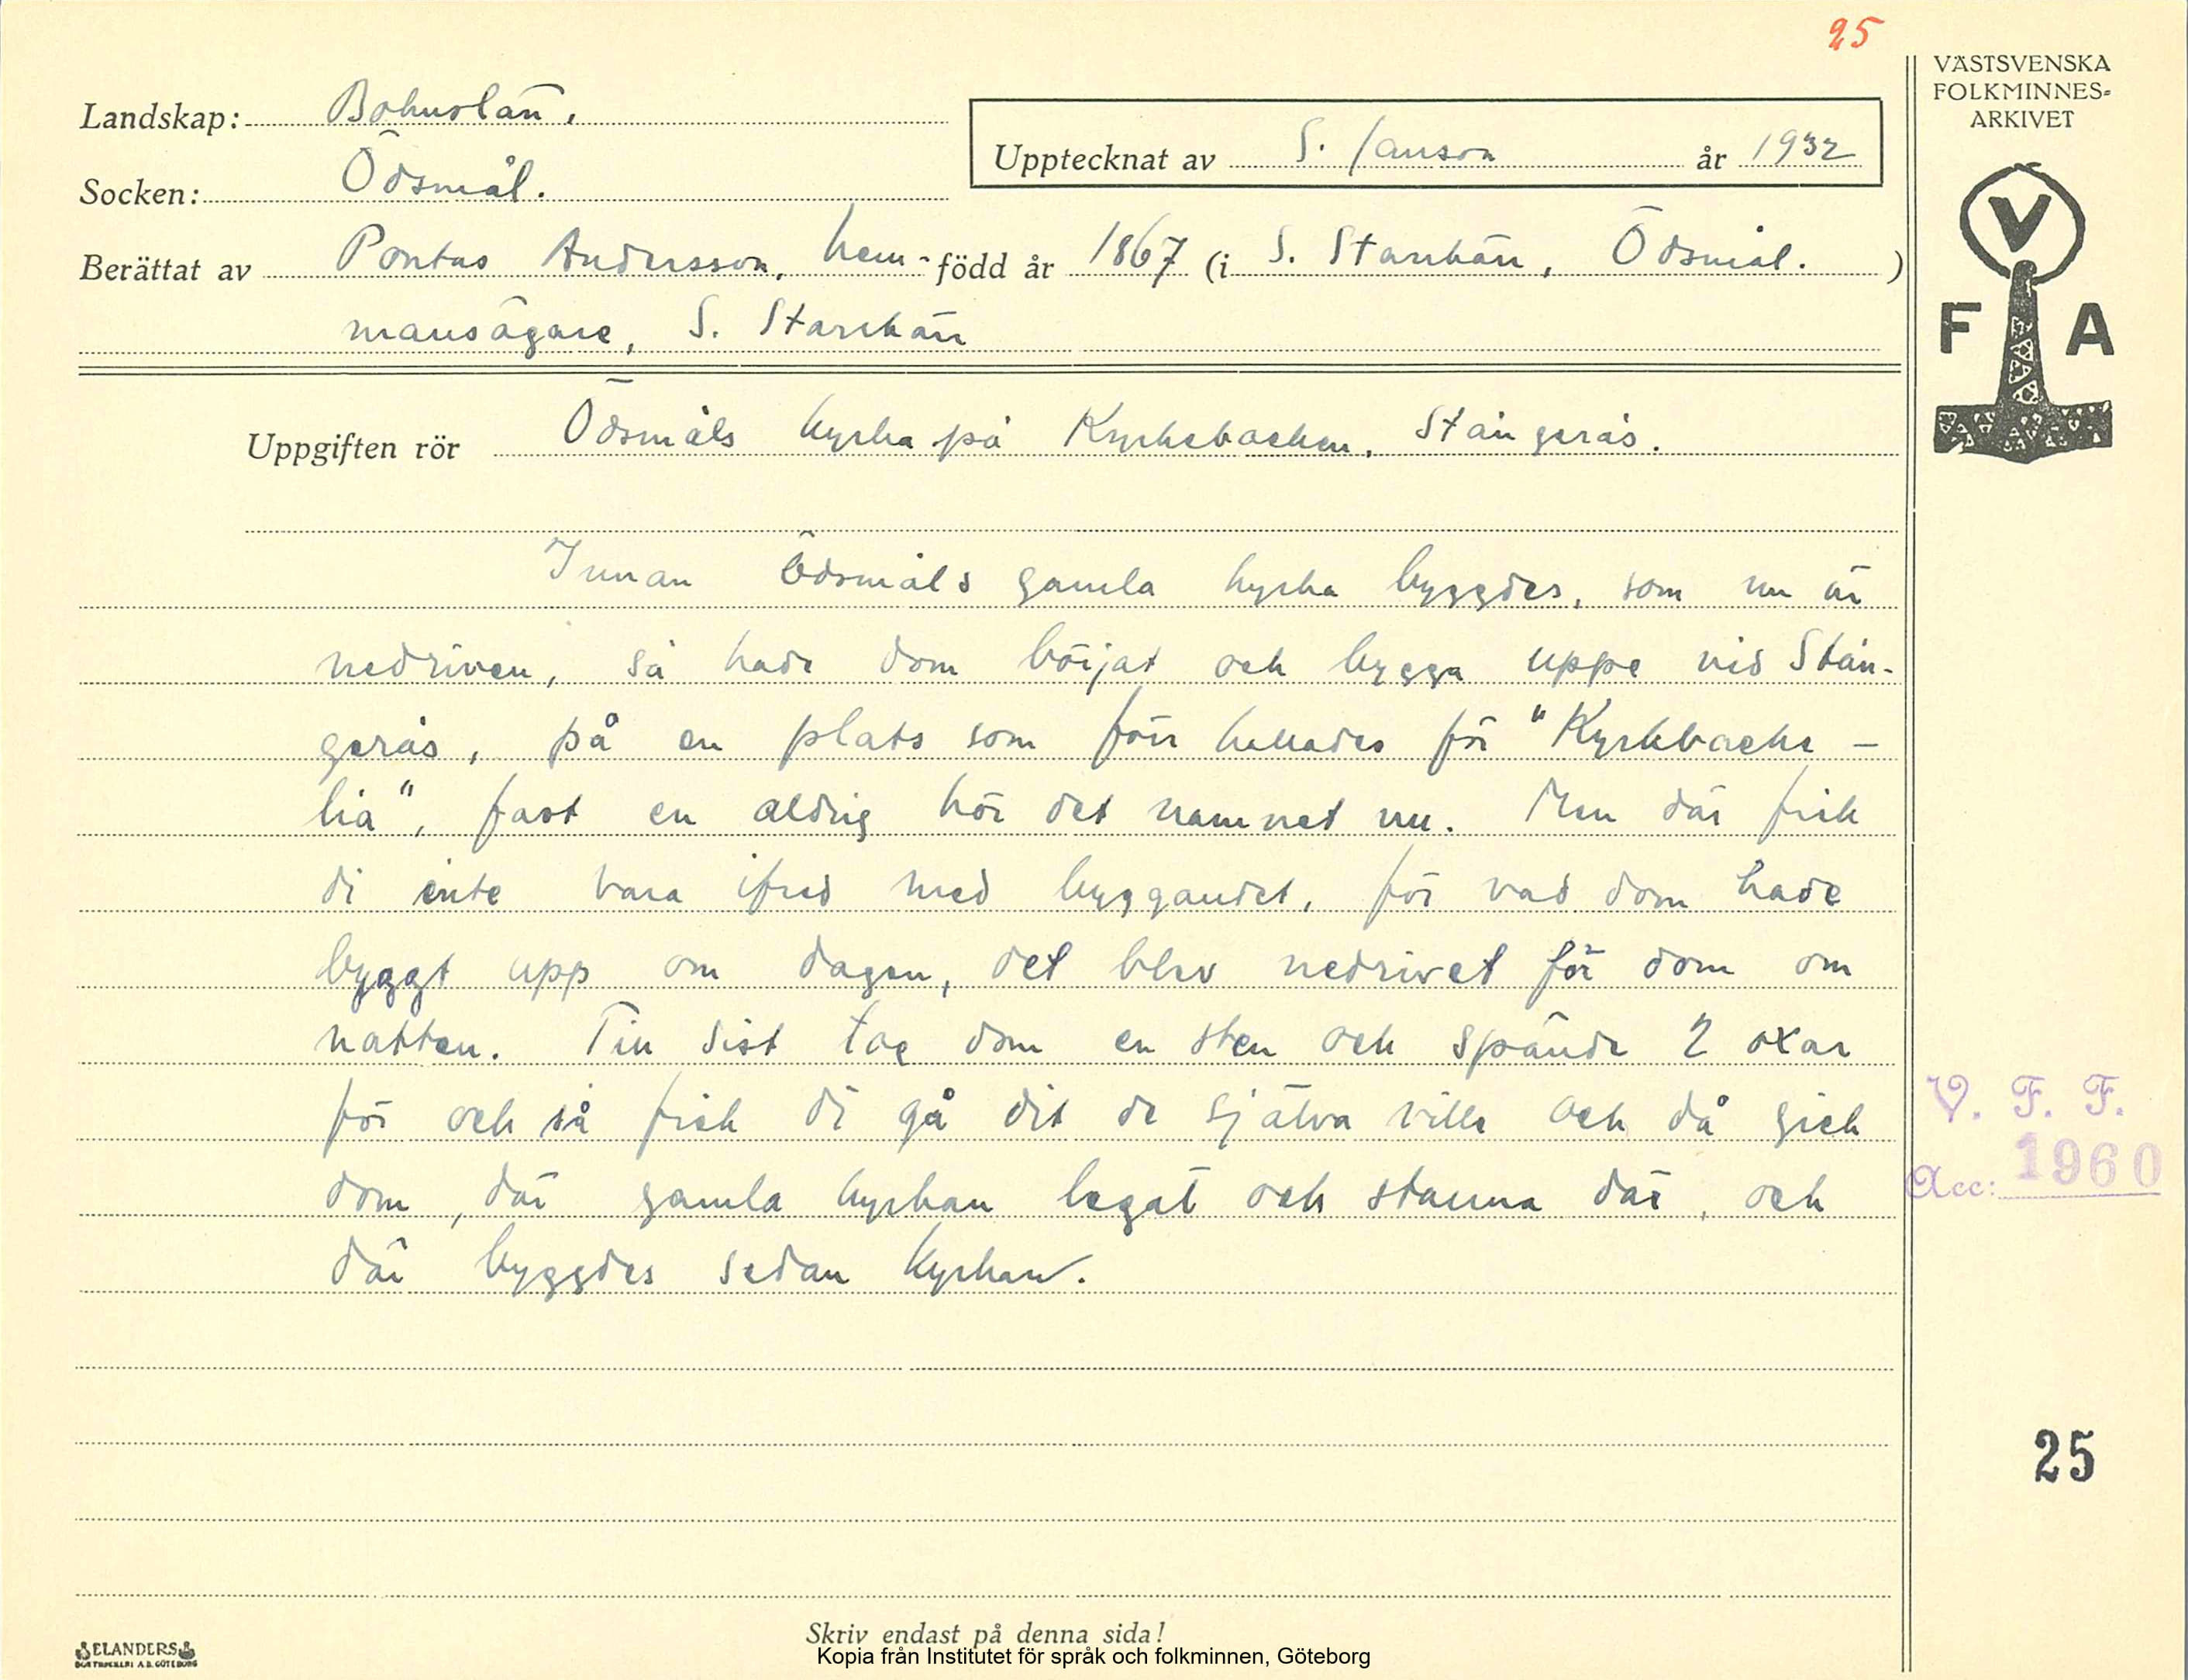 25
VÄSTSVENSKA
FOLKMINNES-
ARKIVET
Landskap: Bohuslän.
Upptecknat av S. Janson år 1932
Socken: Ödsmål.
Berättat av Pontus Andersson, hem- född år 1867 (i S. Starrkärr, Ödsmål. )
mansägare, S. Starrkärr
V
F A
Uppgiften rör Ödsmåls kyrka på Kyrkebacken, Stångerås.
Innan Ödsmåls gamla kyrka byggdes, som nu är
nedriven, så hade dom börjat och bygga uppe vid Stån-
gerås, på en plats som förr kallades för "Kyrkbacke-
lia", fast en aldrig hör det namnet nu. Men där fick
di inte vara ifred med byggandet, för vad dom hade
byggt upp om dagen, det blev nedrivet för dom om
natten. Till sist tog dom en sten och spände 2 oxar
för och så fick di gå dit de själva ville och då gick
dom, där gamla kyrkan legat och stanna där, och
där byggdes sedan kyrkan.
V. F. F.
Acc: 1960
25
Skriv endast på denna sida!
ELANDERS
BOKTRYCKERI A.B. GÖTEBORG
Kopia från Institutet för språk och folkminnen, Göteborg